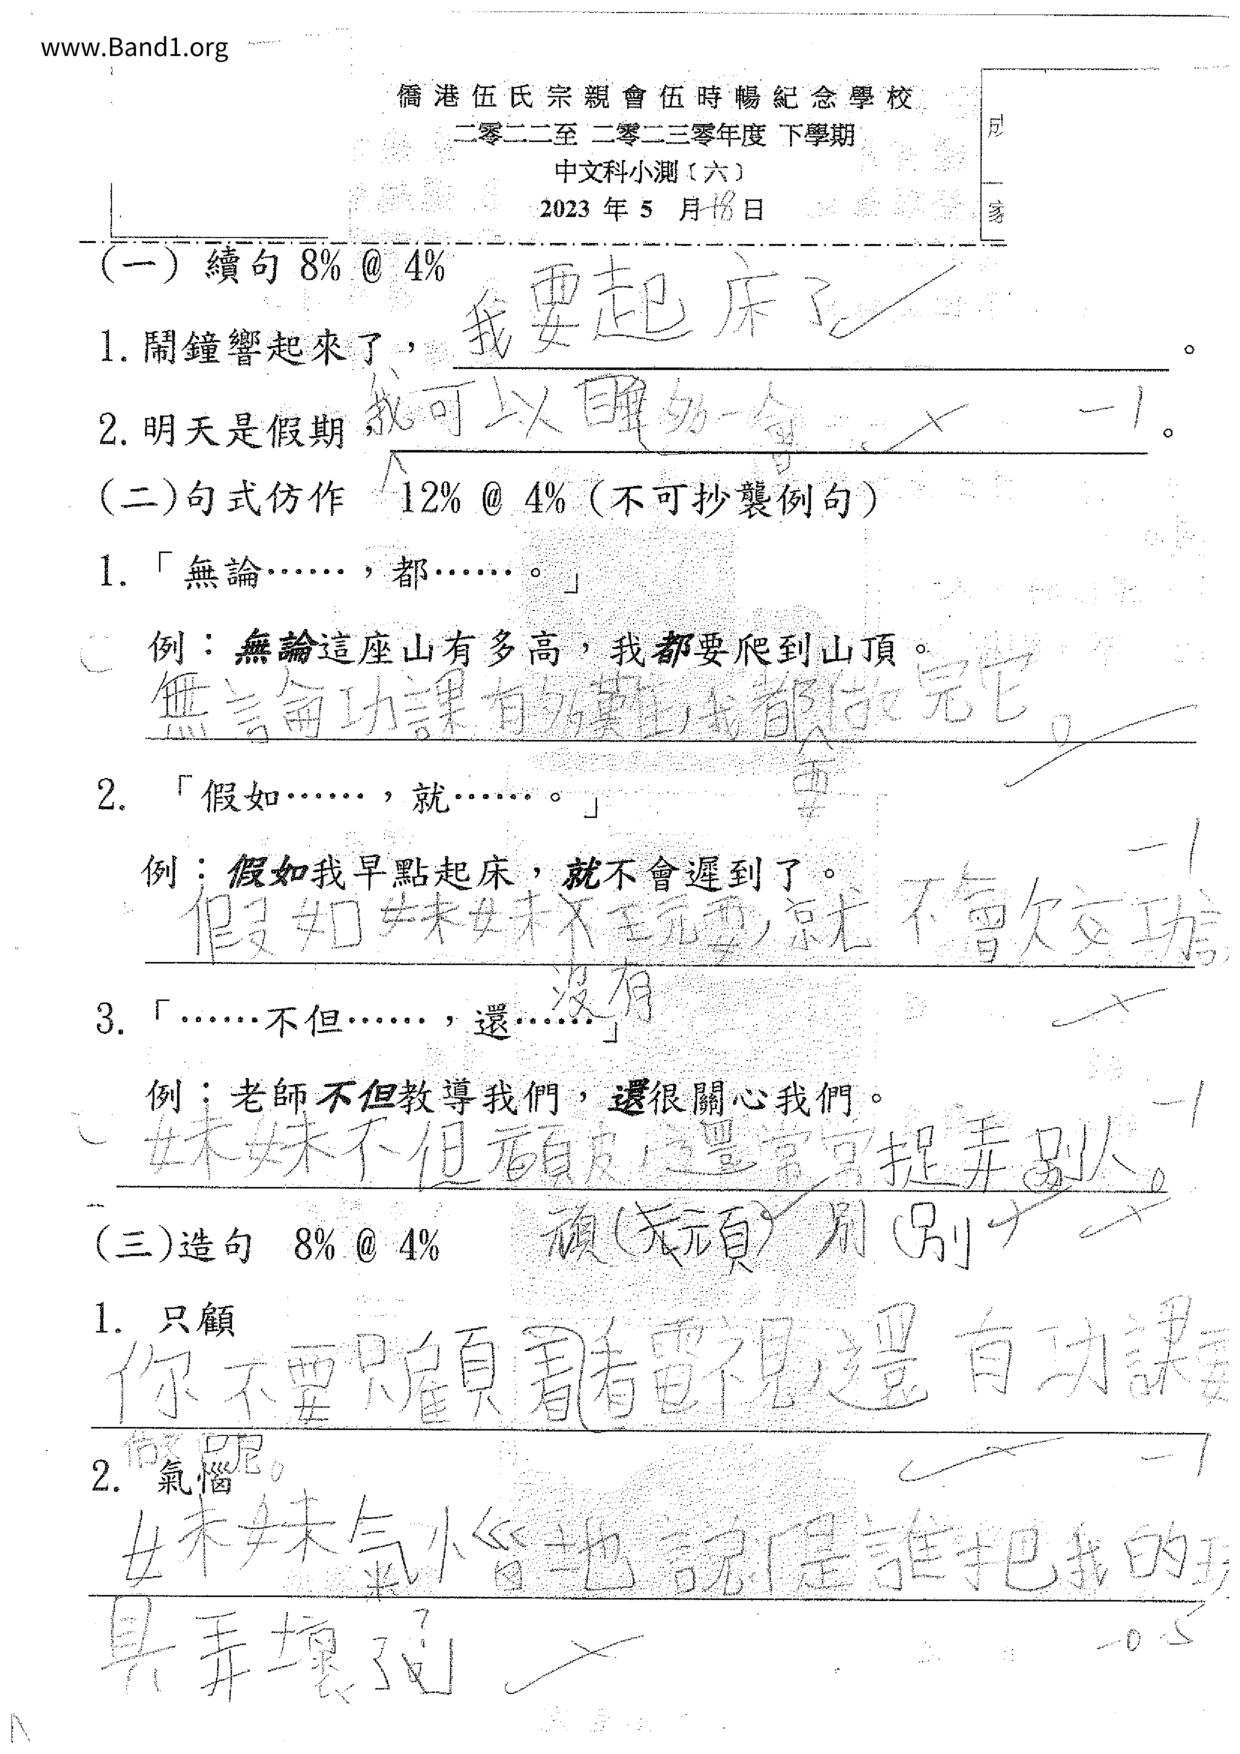 www.Band1.org
僑港伍氏宗親會伍時暢紀念學校
二零二二至 二零二三零年度 下學期
中文科小測（六）
2023 年 5 月 18 日
成
家
(一) 續句 8% @ 4%
1. 鬧鐘響起來了，我要起床了。
2. 明天是假期，我可以睡多一會。
-1
(二)句式仿作 12% @ 4% (不可抄襲例句)
1.「無論……，都……。」
例：無論這座山有多高，我都要爬到山頂。
無論功課有多難，我都做完它。
要
2. 「假如……，就……。」
-1
例：假如我早點起床，就不會遲到了。
假如妹妹不玩耍，就不會欠交功課
沒有
3.「……不但……，還……」
例：老師不但教導我們，還很關心我們。
-1
妹妹不但頑皮，還常常捉弄別人。
頑(頑) 別(別)
(三)造句 8% @ 4%
1. 只顧
你不要只顧着看電視，還有功課要
做呢。
-1
2. 氣惱
妹妹氣惱地說：「是誰把我的玩
具弄壞了？」
-0.5